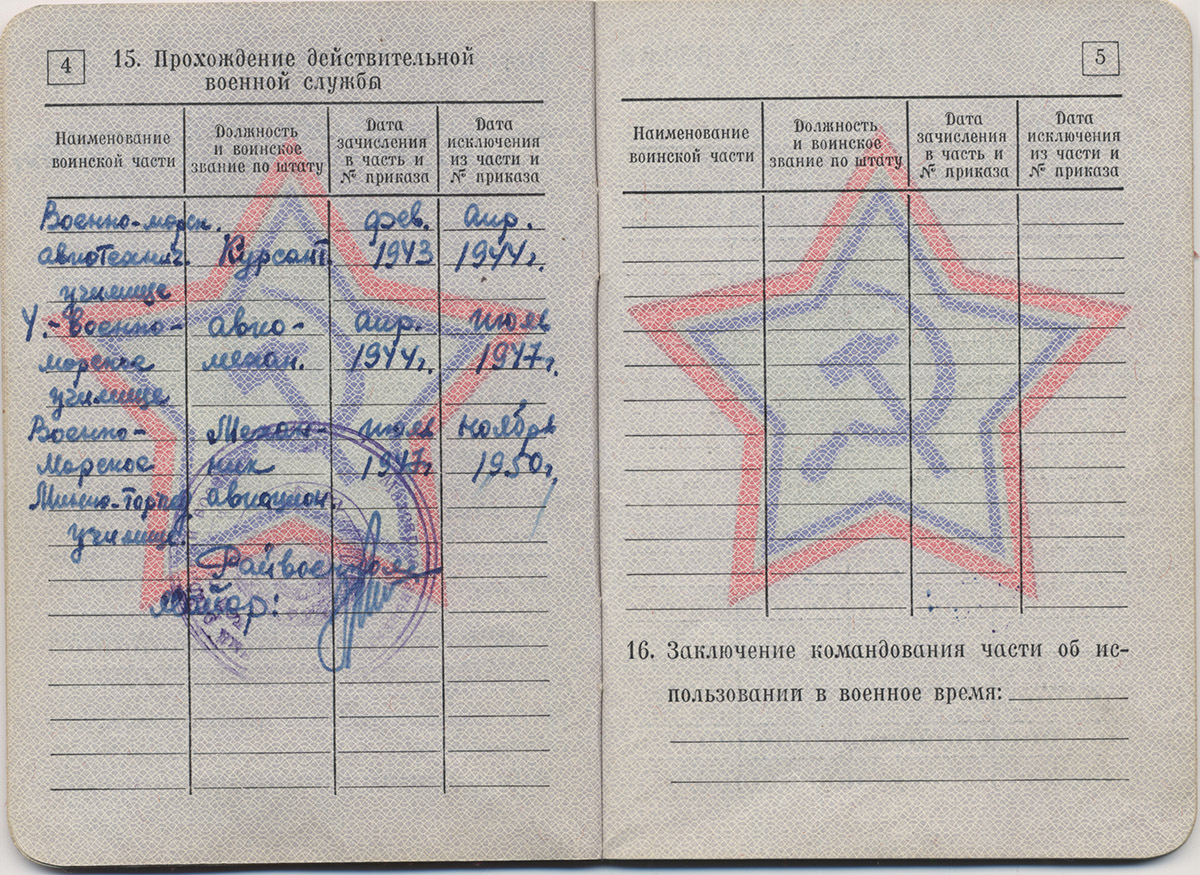 4
15. Прохождение действительной
военной службы
Наименование
воинской части
Должность
и воинское
звание по штату
Дата
зачисления
в часть и
№ приказа
Дата
исключения
из части и
№ приказа
Военно-морск. фев. апр.
авиотехнич. Курсант 1943 1944г.
училище
У.-военно- авио- апр. июль
морское механ. 1944г. 1947г.
училище
Военно- Механ- июль ноябрь
Морское ник 1947г 1950г.
Минно-торпед. авиацион.
училище.
Райвоенком
майор:
5
Наименование
воинской части
Должность
и воинское
звание по штату
Дата
зачисления
в часть и
№ приказа
Дата
исключения
из части и
№ приказа
16. Заключение командования части об ис-
пользовании в военное время: